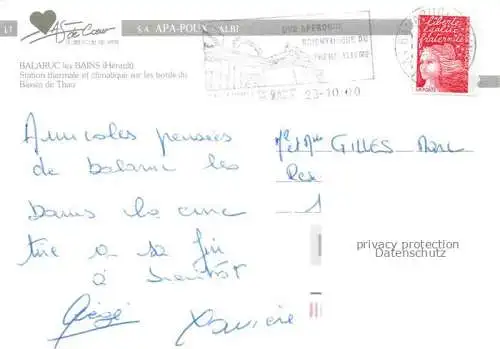 LT
As de Cœur
S.A. APA-POUX - ALBI
BALARUC les BAINS (Hérault)
Station thermale et climatique sur les bords du
Bassin de Thau
UNE APPROCHE
SCIENTIFIQUE DU
THERMALISME
23-10-00
liberté
égalité
fraternité
LA POSTE
Amicales pensées
de balaruc les
bains la cure
tire a sa fin
à bientôt
Xavière
Mr et Mme GILLES Marc
Res
1
privacy protection
Datenschutz